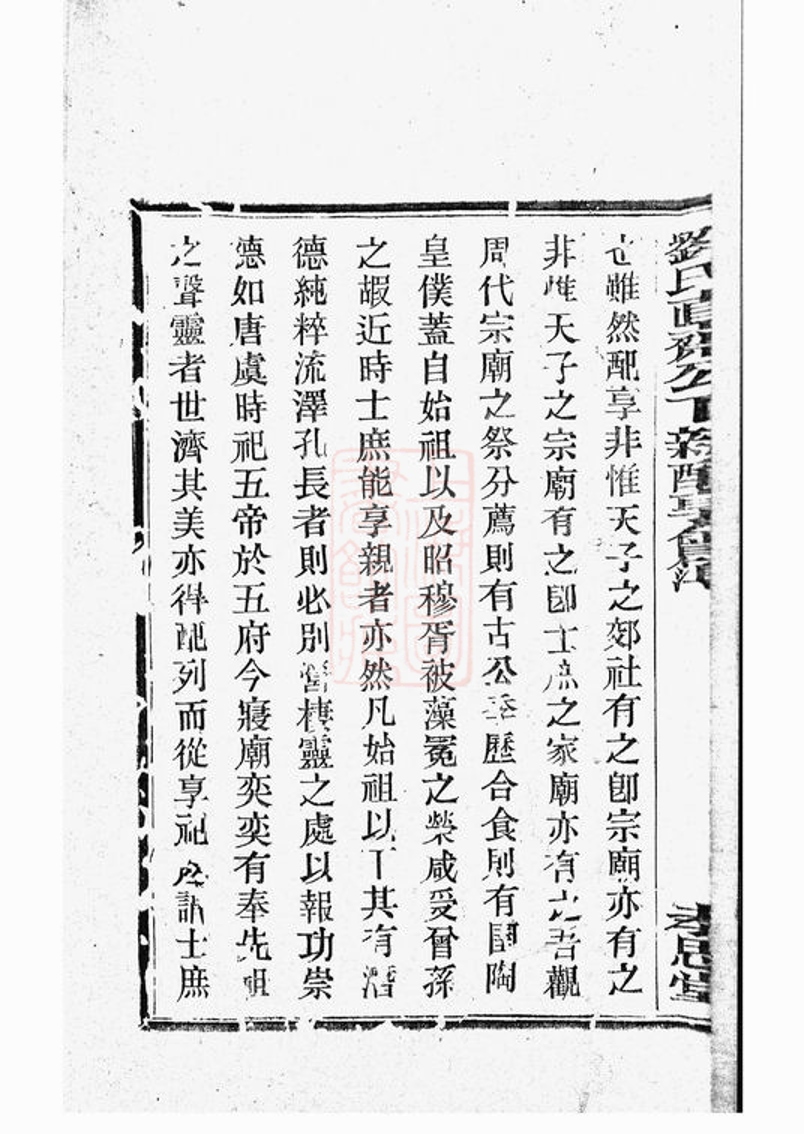 劉氏直齋公下新配享會序
也雖然配享非惟天子之郊社有之卽宗廟亦有之
非惟天子之宗廟有之卽士庶之家廟亦有之吾觀
周代宗廟之祭分薦則有古公季歷合食則有圉陶
皇僕蓋自始祖以及昭穆胥被藻冕之榮咸受曾孫
之嘏近時士庶能享親者亦然凡始祖以下其有潛
德純粹流澤孔長者則必別營棲靈之處以報功崇
德如唐虞時祀五帝於五府今寢廟奕奕有奉先祖
之聲靈者世濟其美亦得配列而從享祀 詎士庶
孝思堂